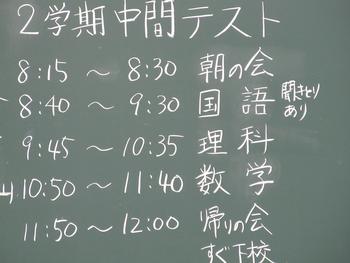 2学期中間テスト
8:15 ～ 8:30 朝の会
8:40 ～ 9:30 国語 聞きとりあり
9:45 ～ 10:35 理科
10:50 ～ 11:40 数学
11:50 ～ 12:00 帰りの会
すぐ下校